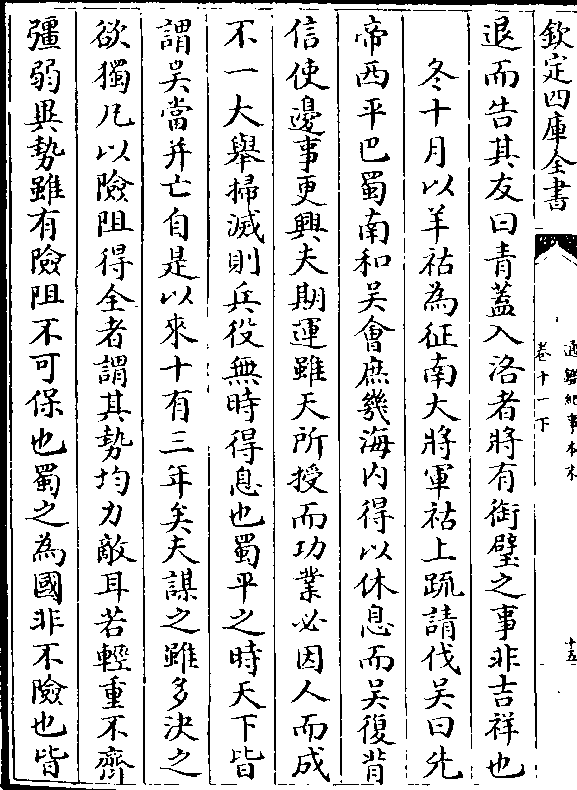 欽定四庫全書
通鑑紀事本末
卷十一下
十五
退而告其友曰青蓋入洛者將有銜璧之事非吉祥也
冬十月以羊祜為征南大將軍祜上疏請伐吳曰先
帝西平巴蜀南和吳會庶幾海內得以休息而吳復背
信使邊事更興夫期運雖天所授而功業必因人而成
不一大舉掃滅則兵役無時得息也蜀平之時天下皆
謂吳當并亡自是以來十有三年矣夫謀之雖多決之
欲獨凡以險阻得全者謂其勢均力敵耳若輕重不齊
彊弱異勢雖有險阻不可保也蜀之為國非不險也皆